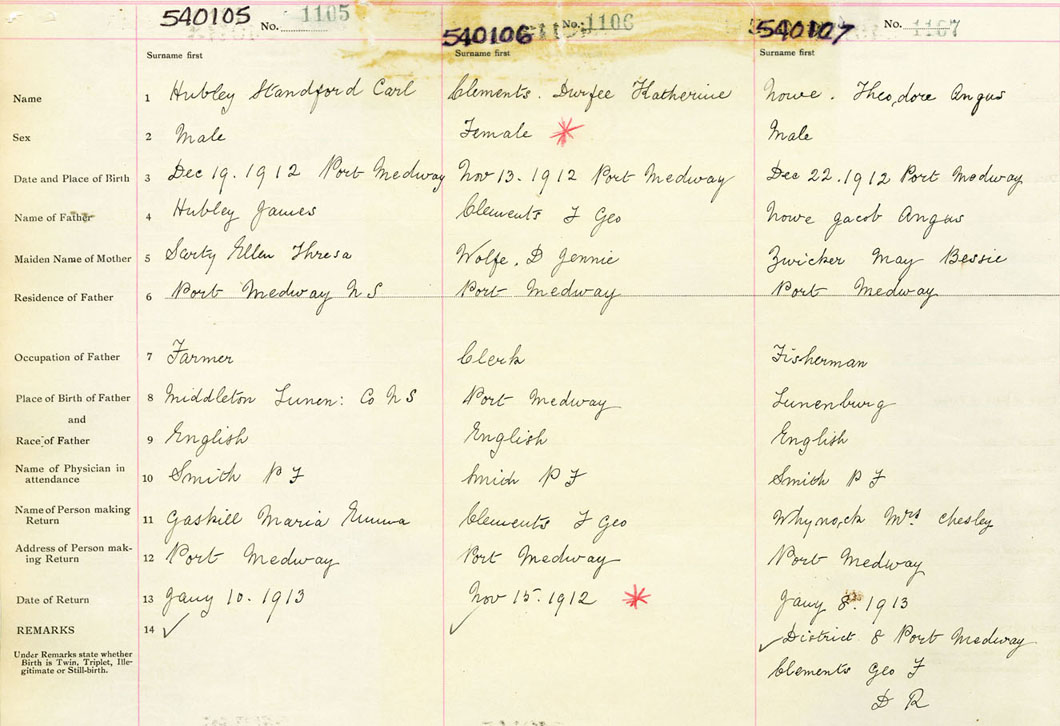 540105 No. 1105 540106 No. 1106 540107 No. 1107
Surname first Surname first Surname first
Name 1 Hubley Standford Carl Clements. Durfee Katherine Nowe. Theodore Angus
Sex 2 Male Female * Male
Date and Place of Birth 3 Dec 19. 1912 Port Medway Nov 13. 1912 Port Medway Dec 22. 1912 Port Medway
Name of Father 4 Hubley James Clements F Geo Nowe Jacob Angus
Maiden Name of Mother 5 Sarty Ellen Thresa Wolfe. D Jennie Zwicker May Bessie
Residence of Father 6 Port Medway N S Port Medway Port Medway
Occupation of Father 7 Farmer Clerk Fisherman
Place of Birth of Father 8 Middleton Lunen: Co N S Port Medway Lunenburg
and
Race of Father 9 English English English
Name of Physician in
attendance 10 Smith P F Smith P F Smith P F
Name of Person making
Return 11 Gaskill Maria Emma Clements F Geo Whynock Mrs Chesley
Address of Person mak-
ing Return 12 Port Medway Port Medway Port Medway
Date of Return 13 Jany 10. 1913 Nov 15. 1912 * Jany 8. 1913
REMARKS 14 ✓ ✓ ✓ District 8 Port Medway
Under Remarks state whether
Birth is Twin, Triplet, Ille-
gitimate or Still-birth.
Clements Geo F
D R